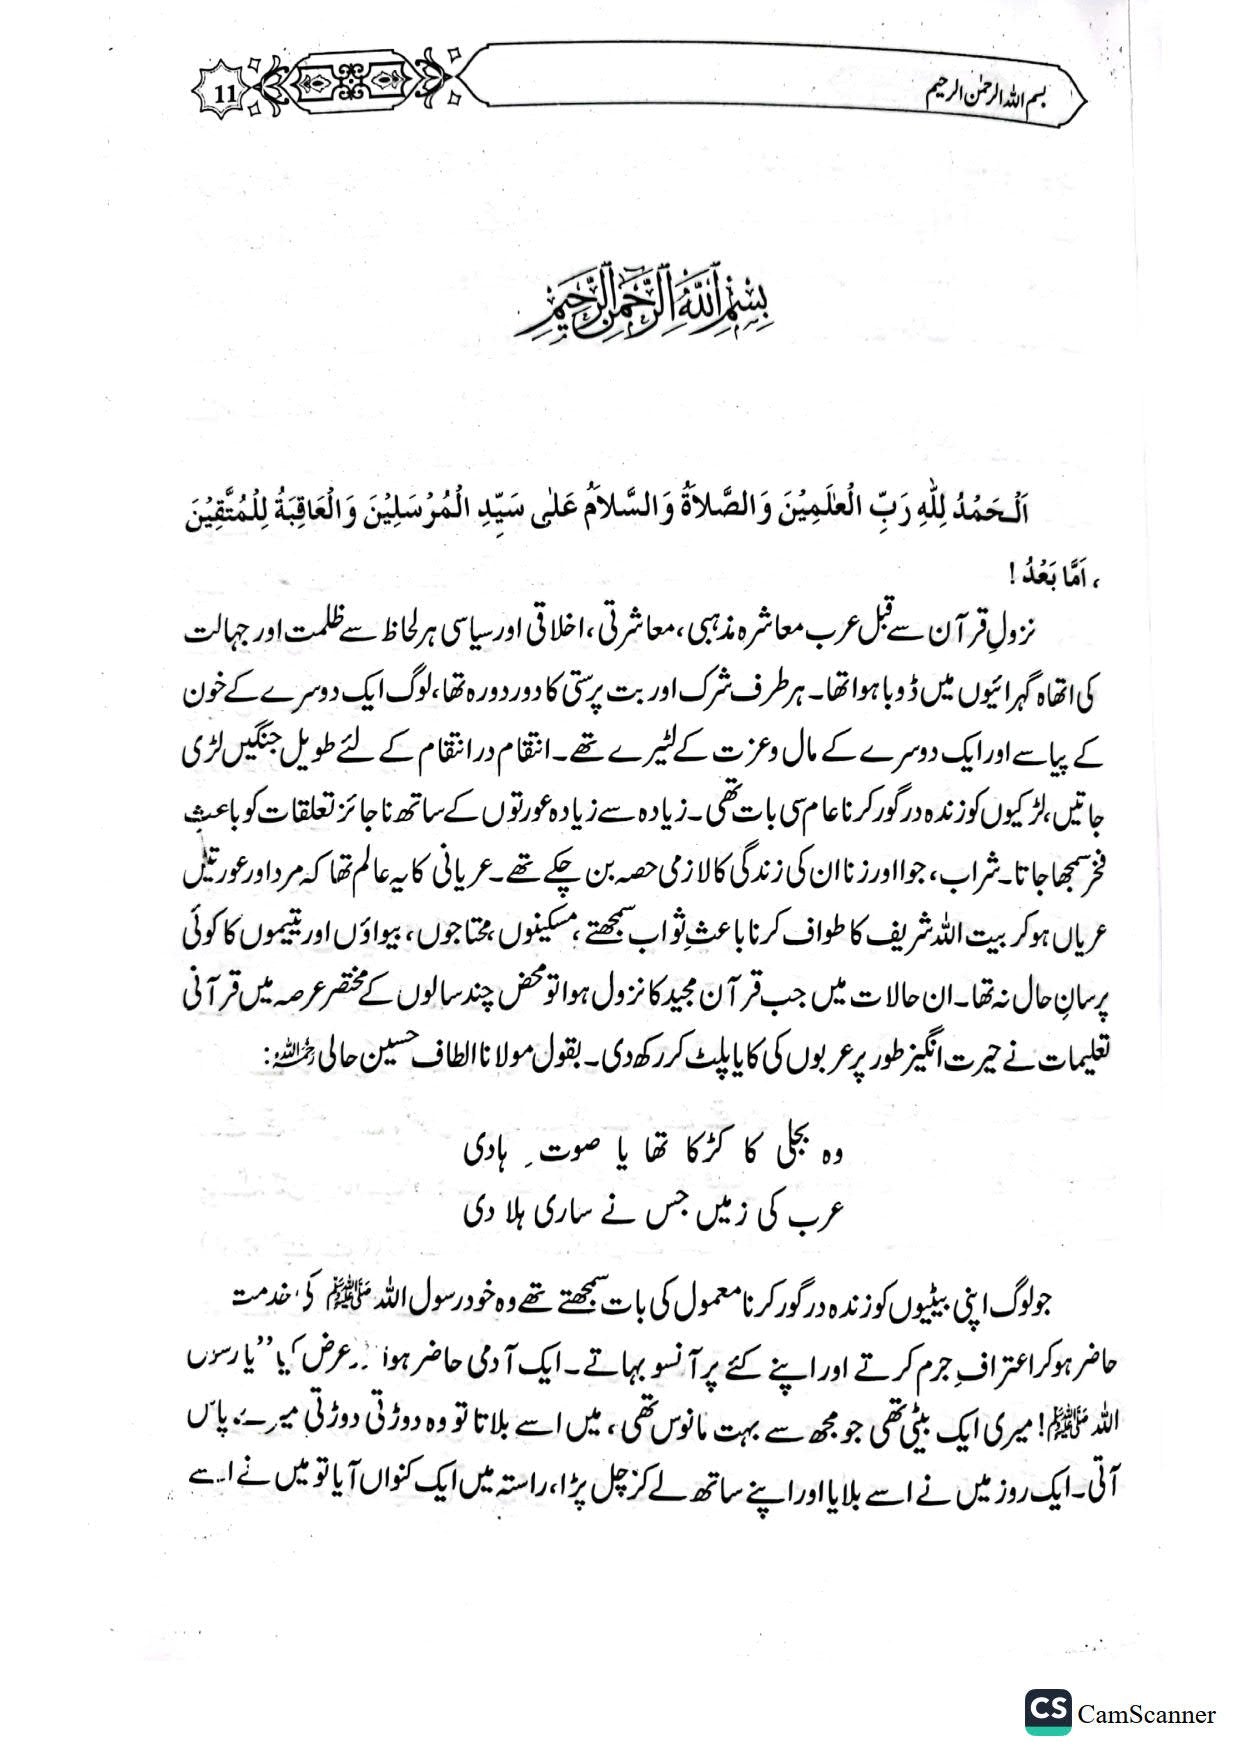 بسم اللہ الرحمٰن الرحیم
11
بِسْمِ اللّٰهِ الرَّحْمٰنِ الرَّحِيْمِ
اَلْحَمْدُ لِلّٰهِ رَبِّ الْعٰلَمِيْنَ وَالصَّلَاةُ وَالسَّلَامُ عَلٰى سَيِّدِ الْمُرْسَلِيْنَ وَالْعَاقِبَةُ لِلْمُتَّقِيْنَ
، اَمَّا بَعْدُ !
نزولِ قرآن سے قبل عرب معاشرہ مذہبی، معاشرتی، اخلاقی اور سیاسی ہر لحاظ سے ظلمت اور جہالت
کی اتھاہ گہرائیوں میں ڈوبا ہوا تھا۔ ہر طرف شرک اور بت پرستی کا دور دورہ تھا، لوگ ایک دوسرے کے خون
کے پیاسے اور ایک دوسرے کے مال و عزت کے لٹیرے تھے۔ انتقام در انتقام کے لئے طویل جنگیں لڑی
جاتیں، لڑکیوں کو زندہ درگور کرنا عام سی بات تھی۔ زیادہ سے زیادہ عورتوں کے ساتھ ناجائز تعلقات کو باعثِ
فخر سمجھا جاتا۔ شراب، جوا اور زنا ان کی زندگی کا لازمی حصہ بن چکے تھے۔ عریانی کا یہ عالم تھا کہ مرد اور عورتیں
عریاں ہو کر بیت اللہ شریف کا طواف کرنا باعثِ ثواب سمجھتے، مسکینوں، محتاجوں، بیواؤں اور یتیموں کا کوئی
پرسانِ حال نہ تھا۔ ان حالات میں جب قرآن مجید کا نزول ہوا تو محض چند سالوں کے مختصر عرصہ میں قرآنی
تعلیمات نے حیرت انگیز طور پر عربوں کی کایا پلٹ کر رکھ دی۔ بقول مولانا الطاف حسین حالی رحمہ اللہ:
وہ بجلی کا کڑکا تھا یا صوتِ ہادی
عرب کی زمیں جس نے ساری ہلا دی
جو لوگ اپنی بیٹیوں کو زندہ درگور کرنا معمول کی بات سمجھتے تھے وہ خود رسول اللہ ﷺ کی خدمت
حاضر ہو کر اعترافِ جرم کرتے اور اپنے کئے پر آنسو بہاتے۔ ایک آدمی حاضر ہوا عرض کیا ”یا رسول
اللہ ﷺ! میری ایک بیٹی تھی جو مجھ سے بہت مانوس تھی، میں اسے بلاتا تو وہ دوڑتی دوڑتی میرے پاس
آتی۔ ایک روز میں نے اسے بلایا اور اپنے ساتھ لے کر چل پڑا، راستہ میں ایک کنواں آیا تو میں نے اسے
CS CamScanner